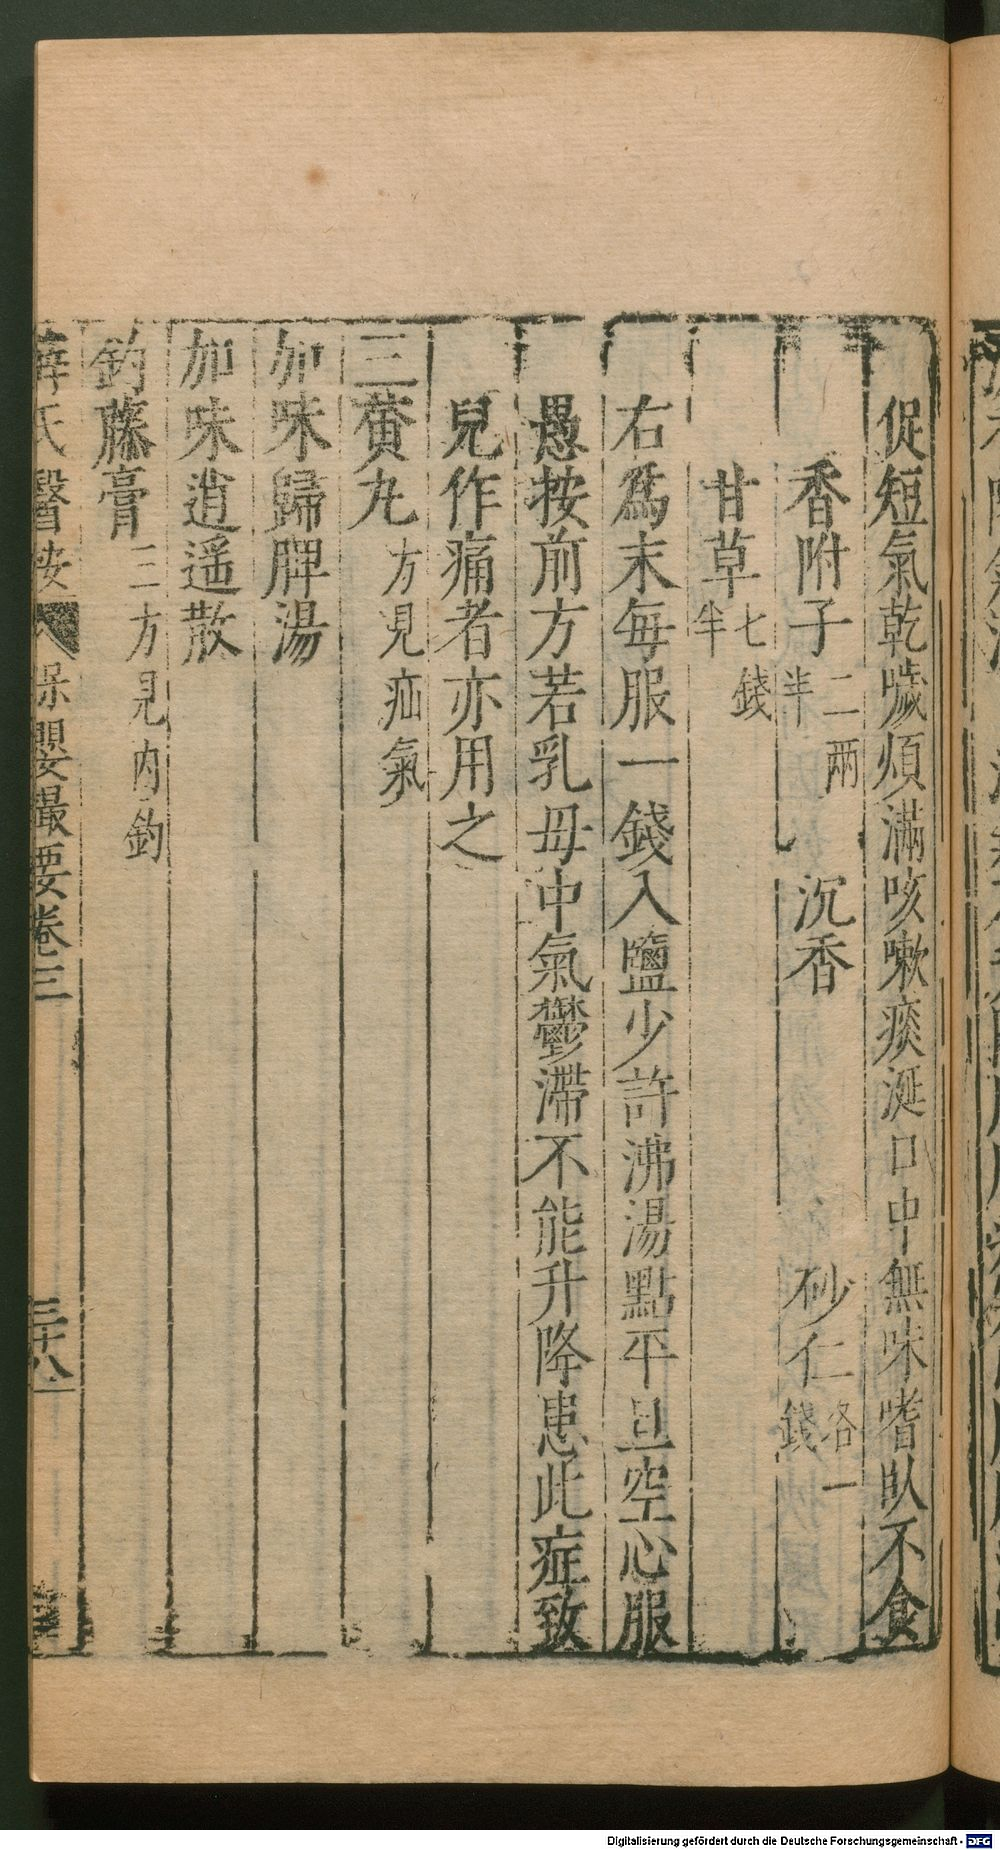 促短氣乾噦煩滿咳嗽痰涎口中無味嗜臥不食
香附子二兩半 沉香 砂仁各一錢
甘草七錢半
右爲末每服一錢入鹽少許沸湯點平旦空心服
愚按前方若乳母中氣鬱滯不能升降患此症致
兒作痛者亦用之
三黄丸方見疝氣
加味歸脾湯
加味逍遥散
釣藤膏二方見内釣
薛氏醫按 保嬰撮要卷三 三十八
Digitalisierung gefördert durch die Deutsche Forschungsgemeinschaft - DFG